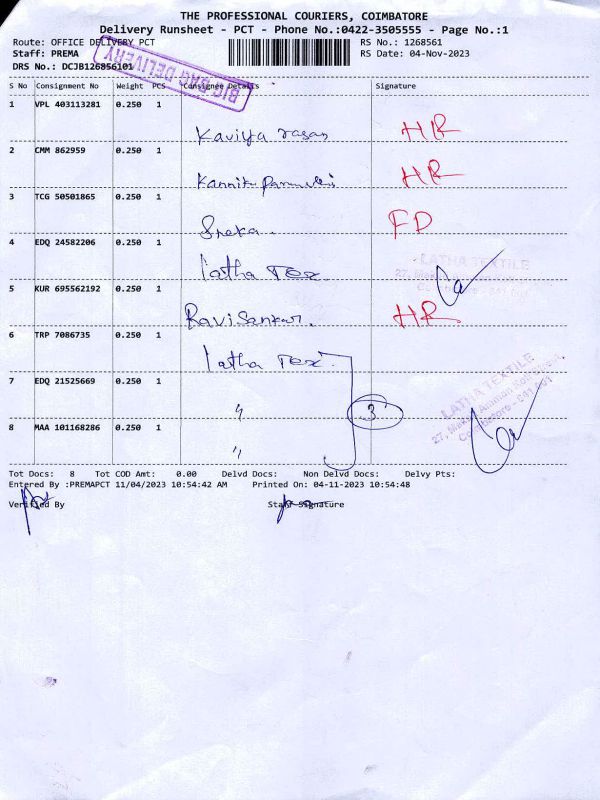 THE PROFESSIONAL COURIERS, COIMBATORE
Delivery Runsheet - PCT - Phone No.:0422-3505555 - Page No.:1
Route: OFFICE DELIVERY PCT RS No.: 1268561
Staff: PREMA RS Date: 04-Nov-2023
DRS No.: DCJB126856101
BIG BAG DELIVERY
S No Consignment No Weight PCS Consignee Details Signature
1 VPL 403113281 0.250 1
Kaviya rasan HR
2 CMM 862959 0.250 1
HR
3 TCG 50501865 0.250 1
Sneka. FD
4 EDQ 24582206 0.250 1
latha Tex
LATHA TEXTILE
5 KUR 695562192 0.250 1
Ravi Sankar. HR
6 TRP 7086735 0.250 1
latha Tex.
7 EDQ 21525669 0.250 1
" 3
LATHA TEXTILE
8 MAA 101168286 0.250 1
"
Tot Docs: 8 Tot COD Amt: 0.00 Delvd Docs: Non Delvd Docs: Delvy Pts:
Entered By :PREMAPCT 11/04/2023 10:54:42 AM Printed On: 04-11-2023 10:54:48
Verified By Staff Signature